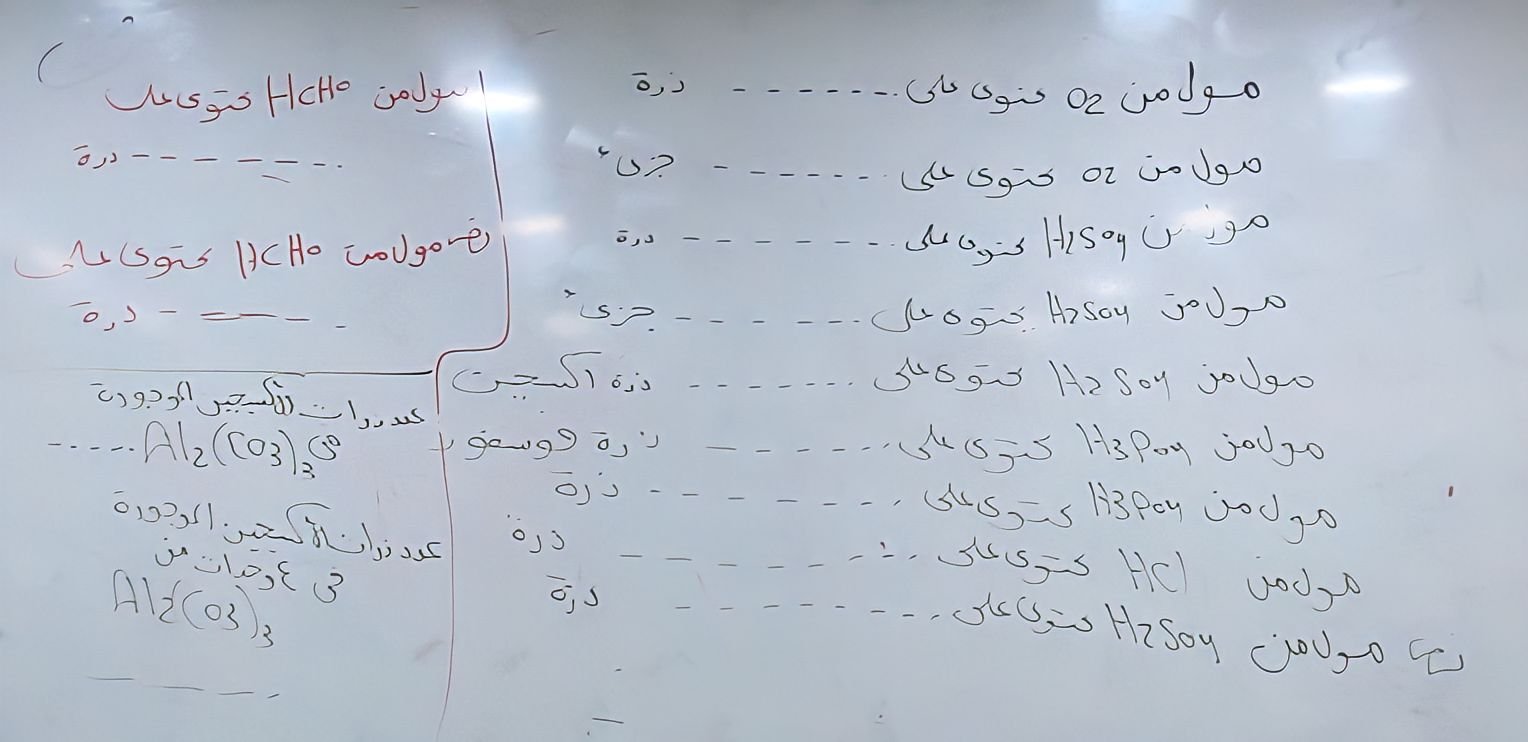 مول من O2 تحتوى على ------- ذرة
مول من O2 تحتوى على ------- جزئ
مول من H2SO4 تحتوى على ------- ذرة
مول من H2SO4 يحتوى على ------- جزئ
مول من H2SO4 تحتوى على ------- ذرة اكسجين
مول من H3PO4 تحتوى على ------- ذرة فوسفور
مول من H3PO4 تحتوى على ------- ذرة
مول من HCl تحتوى على ------- ذرة
مول من H2SO4 تحتوى على ------- ذرة
مول من HCHO تحتوى على
------- ذرة
نصف مول من HCHO تحتوى على
------- ذرة
عدد ذرات الأكسجين الموجودة
فى Al2(CO3)3 ------
عدد ذرات الأكسجين الموجودة
فى ٤ وحدات من
Al2(CO3)3
------